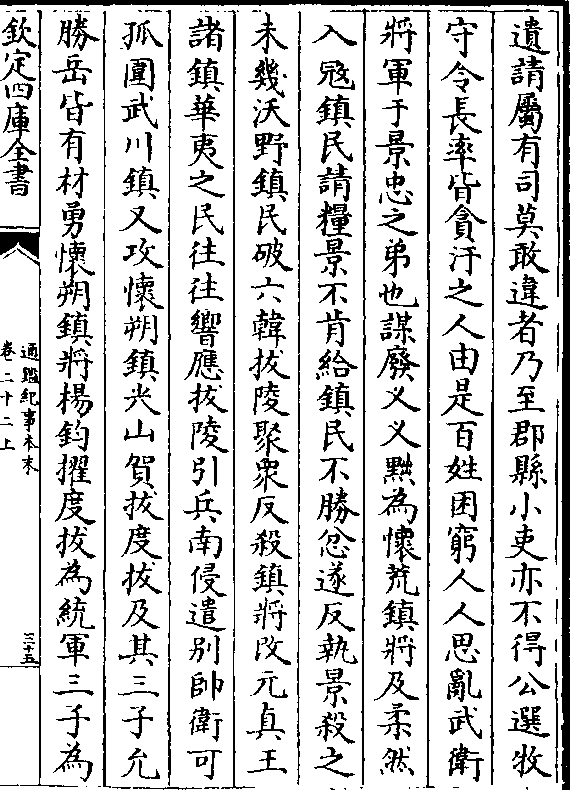 遺請屬有司莫敢違者乃至郡縣小吏亦不得公選牧
守令長率皆貪汙之人由是百姓困窮人人思亂武衛
將軍于景忠之弟也謀廢义义黜為懷荒鎮將及柔然
入宼鎮民請糧景不肯給鎮民不勝忿遂反執景殺之
未幾沃野鎮民破六韓拔陵聚衆反殺鎮將改元真王
諸鎮華夷之民往往響應拔陵引兵南侵遣别帥衛可
孤圍武川鎮又攻懷朔鎮尖山賀拔度拔及其三子允
勝岳皆有材勇懷朔鎮將楊鈞擢度拔為統軍三子為
欽定四庫全書
通鑑紀事本末
卷二十二上
三十五